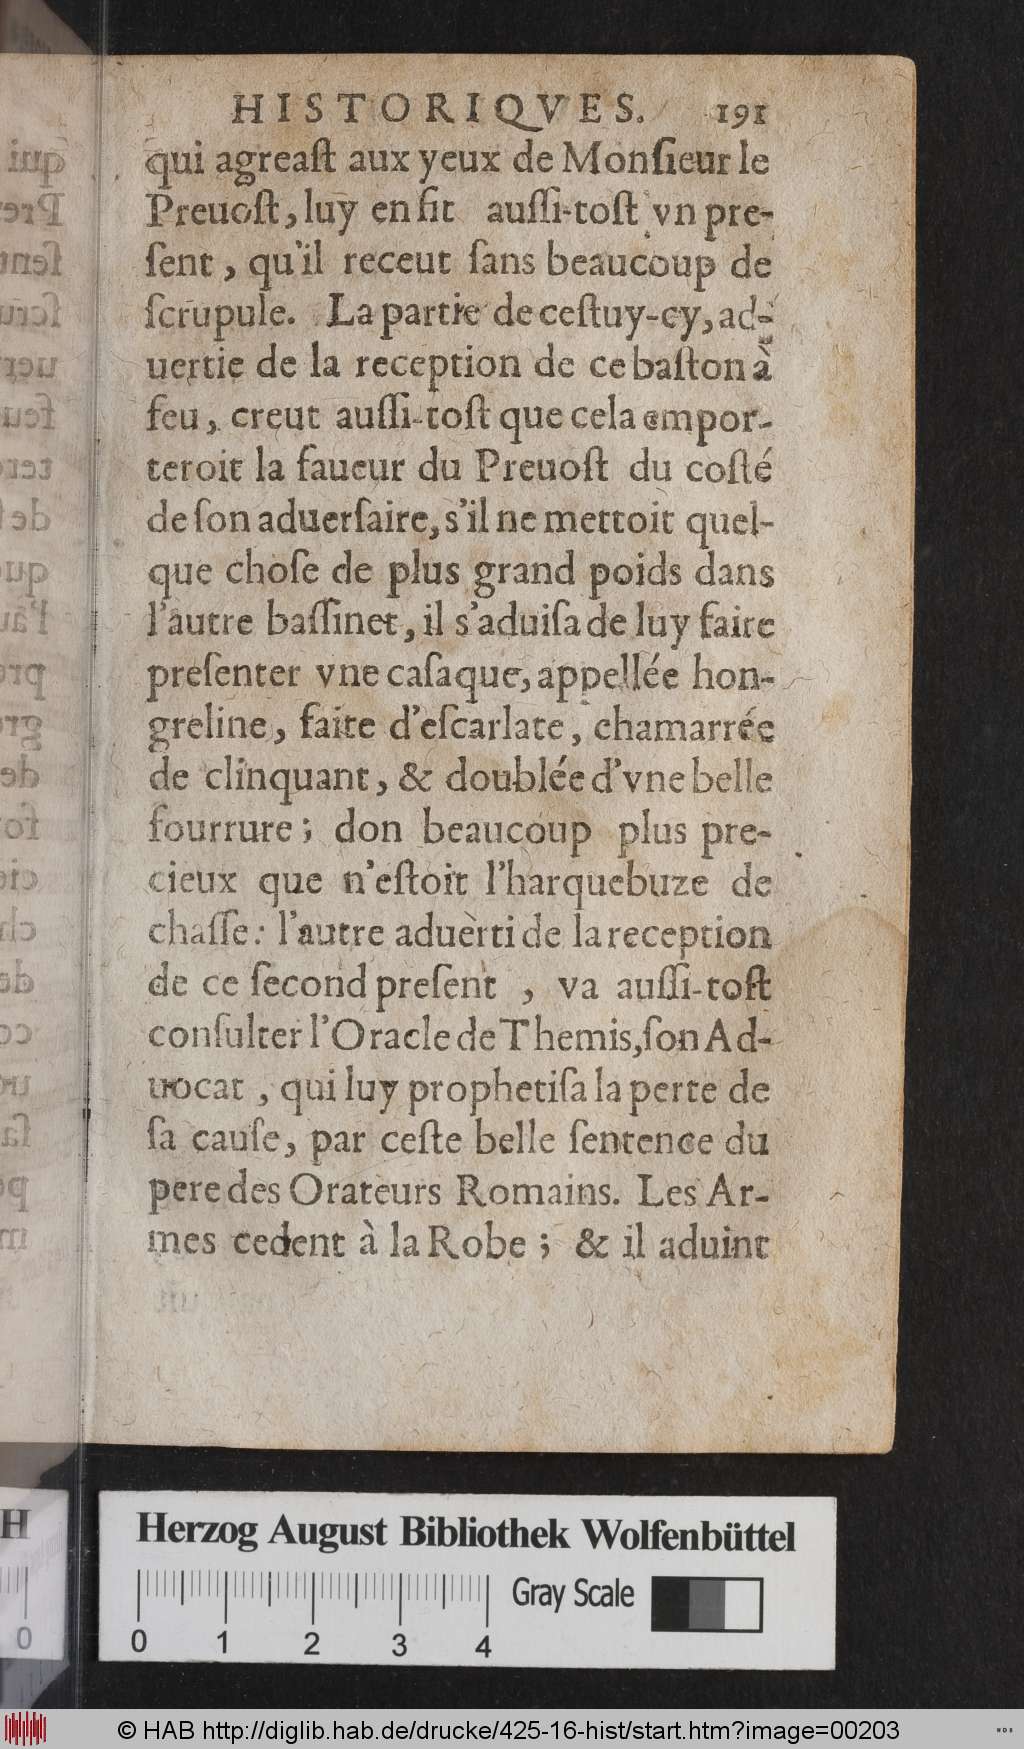 HISTORIQVES. 191
qui agreaſt aux yeux de Monſieur le
Preuoſt, luy en fit auſſi-toſt vn pre-
ſent, qu'il receut ſans beaucoup de
ſcrupule. La partie de ceſtuy-cy, ad-
uertie de la reception de ce baſton à
feu, creut auſſi-toſt que cela empor-
teroit la faueur du Preuoſt du coſté
de ſon aduerſaire, s'il ne mettoit quel-
que choſe de plus grand poids dans
l'autre baſſinet, il s'aduiſa de luy faire
preſenter vne caſaque, appellée hon-
greline, faite d'eſcarlate, chamarrée
de clinquant, & doublée d'vne belle
fourrure; don beaucoup plus pre-
cieux que n'eſtoit l'harquebuze de
chaſſe: l'autre aduerti de la reception
de ce ſecond preſent, va auſſi-toſt
conſulter l'Oracle de Themis, ſon Ad-
uocat, qui luy prophetiſa la perte de
ſa cauſe, par ceſte belle ſentence du
pere des Orateurs Romains. Les Ar-
mes cedent à la Robe; & il aduint
Herzog August Bibliothek Wolfenbüttel
Gray Scale
0 1 2 3 4
© HAB http://diglib.hab.de/drucke/425-16-hist/start.htm?image=00203